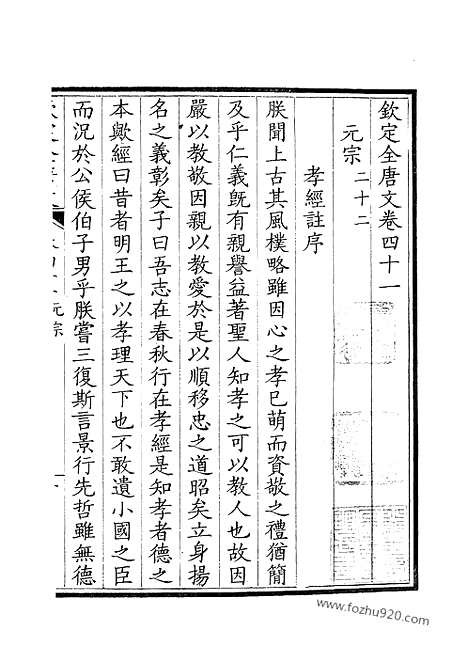 欽定全唐文卷四十一
元宗二十二
孝經註序
朕聞上古其風樸略雖因心之孝已萌而資敬之禮猶簡
及乎仁義旣有親譽益著聖人知孝之可以教人也故因
嚴以教敬因親以教愛於是以順移忠之道昭矣立身揚
名之義彰矣子曰吾志在春秋行在孝經是知孝者德之
本歟經曰昔者明王之以孝理天下也不敢遺小國之臣
而況於公侯伯子男乎朕嘗三復斯言景行先哲雖無德
元宗
www.fozhu920.com